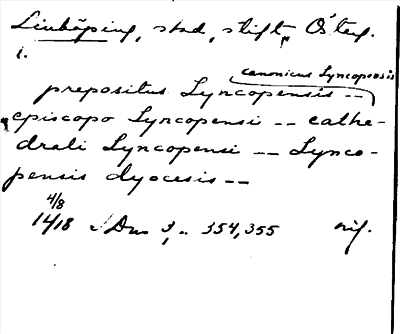 Linköping, stad, stift, Österg.
1.
canonicus Lyncopensis
prepositus Lyncopensis --
episcopo Lyncopensi -- cathe-
drali Lyncopensi -- Lynco-
pensis dyocesis --
4/8
14/18 Dns 3, .. 354, 355 nif.